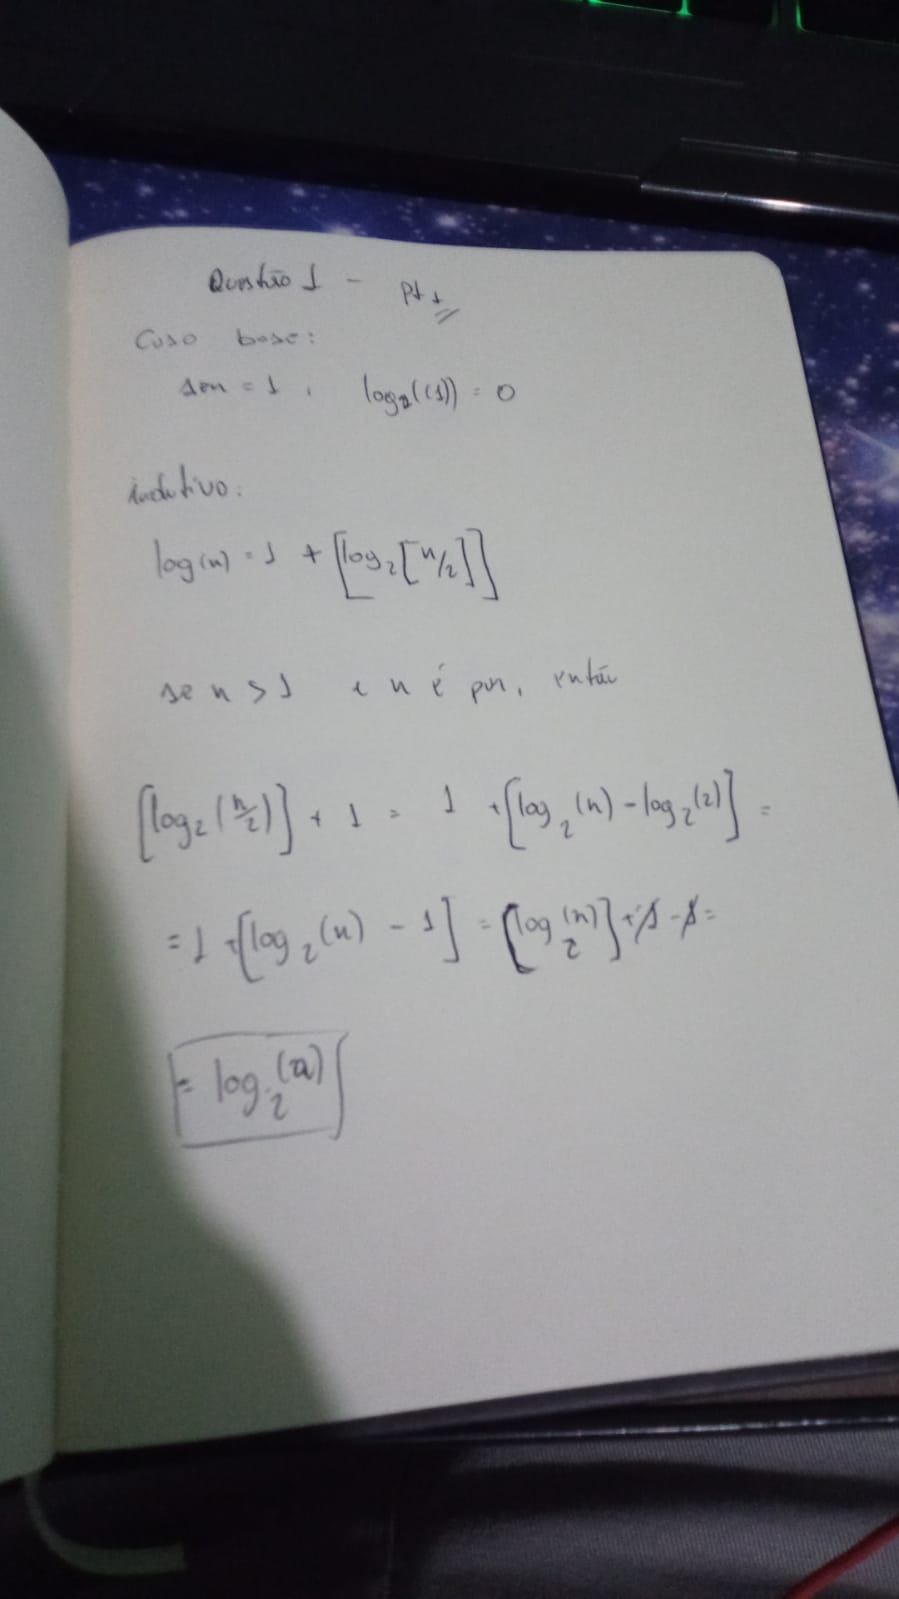 Questão 1 - Pt 1
Caso base:
se n = 1, log₂((1)) = 0
indutivo:
log(n) = 1 + [log₂[n/2]]
se n > 1 e n é par, então
[log₂(n/2)] + 1 = 1 + [log₂(n) - log₂(2)] =
= 1 + [log₂(n) - 1] = [log₂(n)] + 1 - 1 =
= log₂(n)